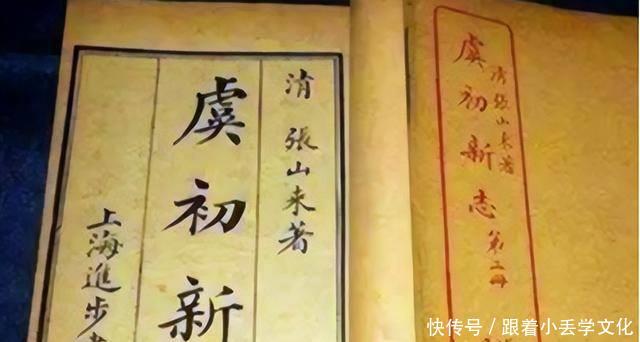 清 張山来著
虞初新
上海進步
清 張山来著
虞初新志 第二冊
快传号 / 跟着小丢学文化